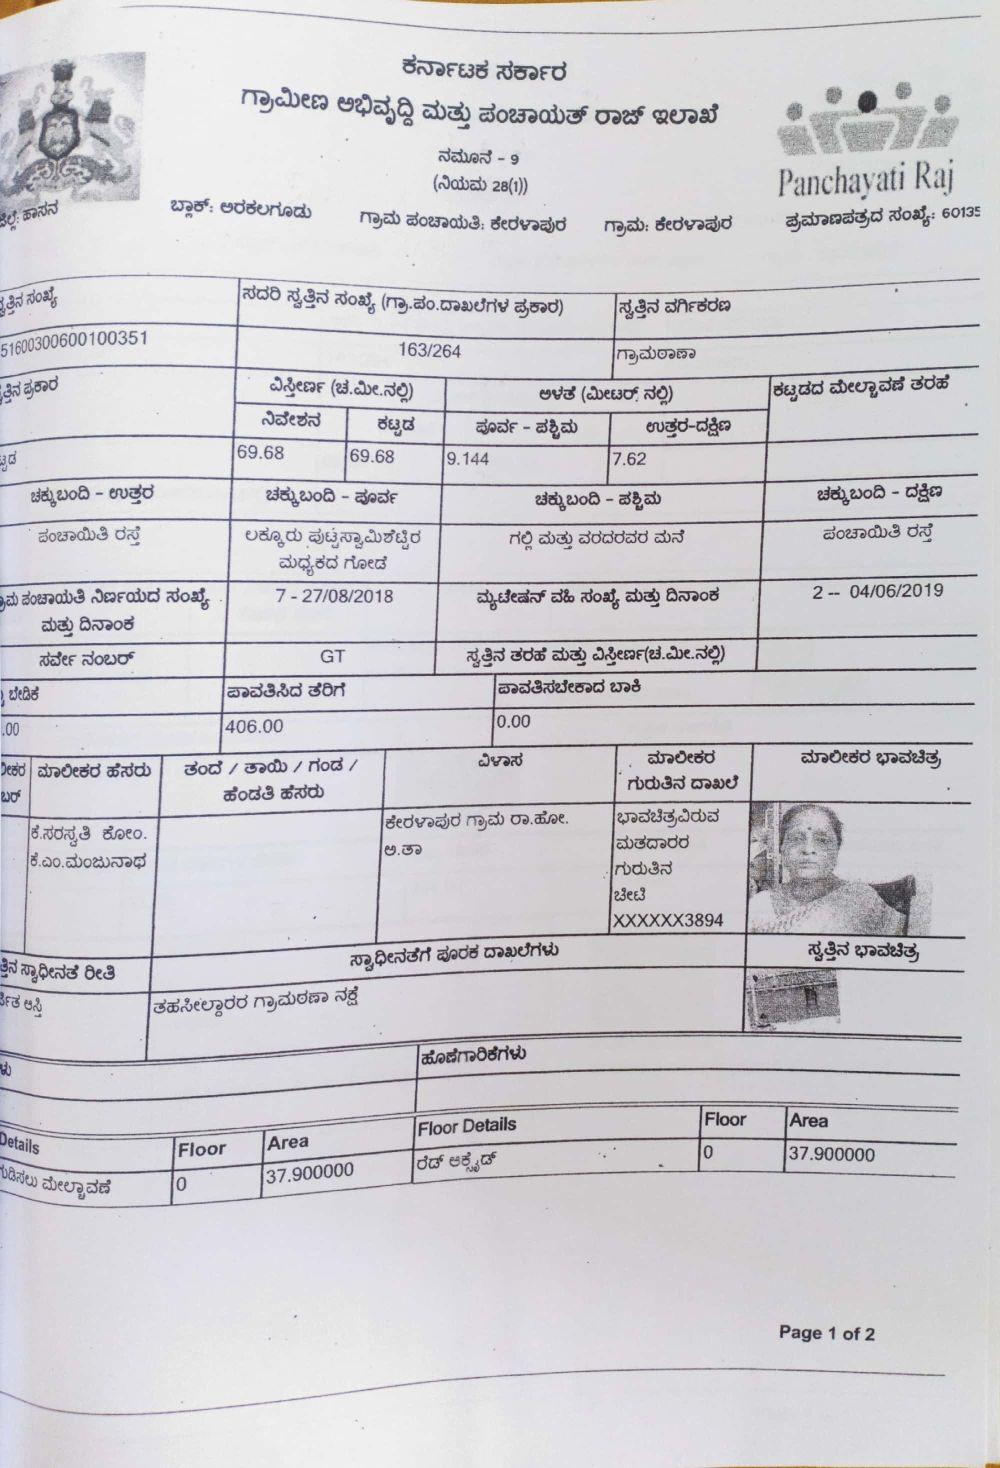 ಕರ್ನಾಟಕ ಸರ್ಕಾರ
ಗ್ರಾಮೀಣ ಅಭಿವೃದ್ದಿ ಮತ್ತು ಪಂಚಾಯತ್ ರಾಜ್ ಇಲಾಖೆ
ನಮೂನೆ - 9
(ನಿಯಮ 28(1))
Panchayati Raj
ಹಾಸನ ಬ್ಲಾಕ್: ಅರಕಲಗೂಡು ಗ್ರಾಮ ಪಂಚಾಯತಿ: ಕೇರಳಾಪುರ ಗ್ರಾಮ: ಕೇರಳಾಪುರ ಪ್ರಮಾಣಪತ್ರದ ಸಂಖ್ಯೆ: 60135
ಸ್ವತ್ತಿನ ಸಂಖ್ಯೆ ಸದರಿ ಸ್ವತ್ತಿನ ಸಂಖ್ಯೆ (ಗ್ರಾ.ಪಂ.ದಾಖಲೆಗಳ ಪ್ರಕಾರ) ಸ್ವತ್ತಿನ ವರ್ಗಿಕರಣ
51600300600100351 163/264 ಗ್ರಾಮಠಾಣಾ
ಪ್ರಕಾರ ವಿಸ್ತೀರ್ಣ (ಚ.ಮೀ.ನಲ್ಲಿ) ಅಳತೆ (ಮೀಟರ್ ನಲ್ಲಿ) ಕಟ್ಟಡದ ಮೇಲ್ಚಾವಣೆ ತರಹೆ
ನಿವೇಶನ ಕಟ್ಟಡ ಪೂರ್ವ - ಪಶ್ಚಿಮ ಉತ್ತರ-ದಕ್ಷಿಣ
69.68 69.68 9.144 7.62
ಚಕ್ಕುಬಂದಿ - ಉತ್ತರ ಚಕ್ಕುಬಂದಿ - ಪೂರ್ವ ಚಕ್ಕುಬಂದಿ - ಪಶ್ಚಿಮ ಚಕ್ಕುಬಂದಿ - ದಕ್ಷಿಣ
ಪಂಚಾಯಿತಿ ರಸ್ತೆ ಲಕ್ಕೂರು ಪುಟ್ಟಸ್ವಾಮಿಶೆಟ್ಟಿರ ಗಲ್ಲಿ ಮತ್ತು ವರದರವರ ಮನೆ ಪಂಚಾಯಿತಿ ರಸ್ತೆ
ಮಧ್ಯಕದ ಗೋಡೆ
ಪಂಚಾಯತಿ ನಿರ್ಣಯದ ಸಂಖ್ಯೆ 7 - 27/08/2018 ಮ್ಯಟೇಷನ್ ವಹಿ ಸಂಖ್ಯೆ ಮತ್ತು ದಿನಾಂಕ 2 -- 04/06/2019
ಮತ್ತು ದಿನಾಂಕ
ಸರ್ವೇ ನಂಬರ್ GT ಸ್ವತ್ತಿನ ತರಹೆ ಮತ್ತು ವಿಸ್ತೀರ್ಣ(ಚ.ಮೀ.ನಲ್ಲಿ)
ಬೇಡಿಕೆ ಪಾವತಿಸಿದ ತೆರಿಗೆ ಪಾವತಿಸಬೇಕಾದ ಬಾಕಿ
.00 406.00 0.00
ಮಾಲೀಕರ ಹೆಸರು ತಂದೆ / ತಾಯಿ / ಗಂಡ / ವಿಳಾಸ ಮಾಲೀಕರ ಮಾಲೀಕರ ಭಾವಚಿತ್ರ
ಹೆಂಡತಿ ಹೆಸರು ಗುರುತಿನ ದಾಖಲೆ
ಕೆ.ಸರಸ್ವತಿ ಕೋಂ. ಕೇರಳಾಪುರ ಗ್ರಾಮ ರಾ.ಹೋ. ಭಾವಚಿತ್ರವಿರುವ
ಕೆ.ಎಂ.ಮಂಜುನಾಥ ಅ.ತಾ ಮತದಾರರ
ಗುರುತಿನ
ಚೀಟಿ
XXXXXX3894
ಸ್ವಾಧೀನತೆ ರೀತಿ ಸ್ವಾಧೀನತೆಗೆ ಪೂರಕ ದಾಖಲೆಗಳು ಸ್ವತ್ತಿನ ಭಾವಚಿತ್ರ
ಆಸ್ತಿ ತಹಸೀಲ್ದಾರರ ಗ್ರಾಮಠಣಾ ನಕ್ಷೆ
ಹೊಣೆಗಾರಿಕೆಗಳು
Details Floor Area Floor Details Floor Area
ಮೇಲ್ಚಾವಣೆ 0 37.900000 ರೆಡ್ ಆಕ್ಸೈಡ್ 0 37.900000
Page 1 of 2